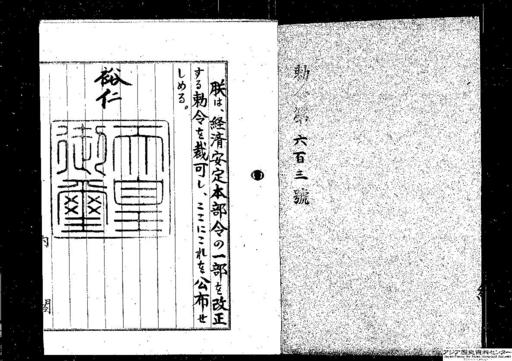 勅令第六百三號
朕は、経済安定本部令の一部を改正
する勅令を裁可し、ここにこれを公布せ
しめる。
裕仁
天皇御璽
内閣
アジア歴史資料センター